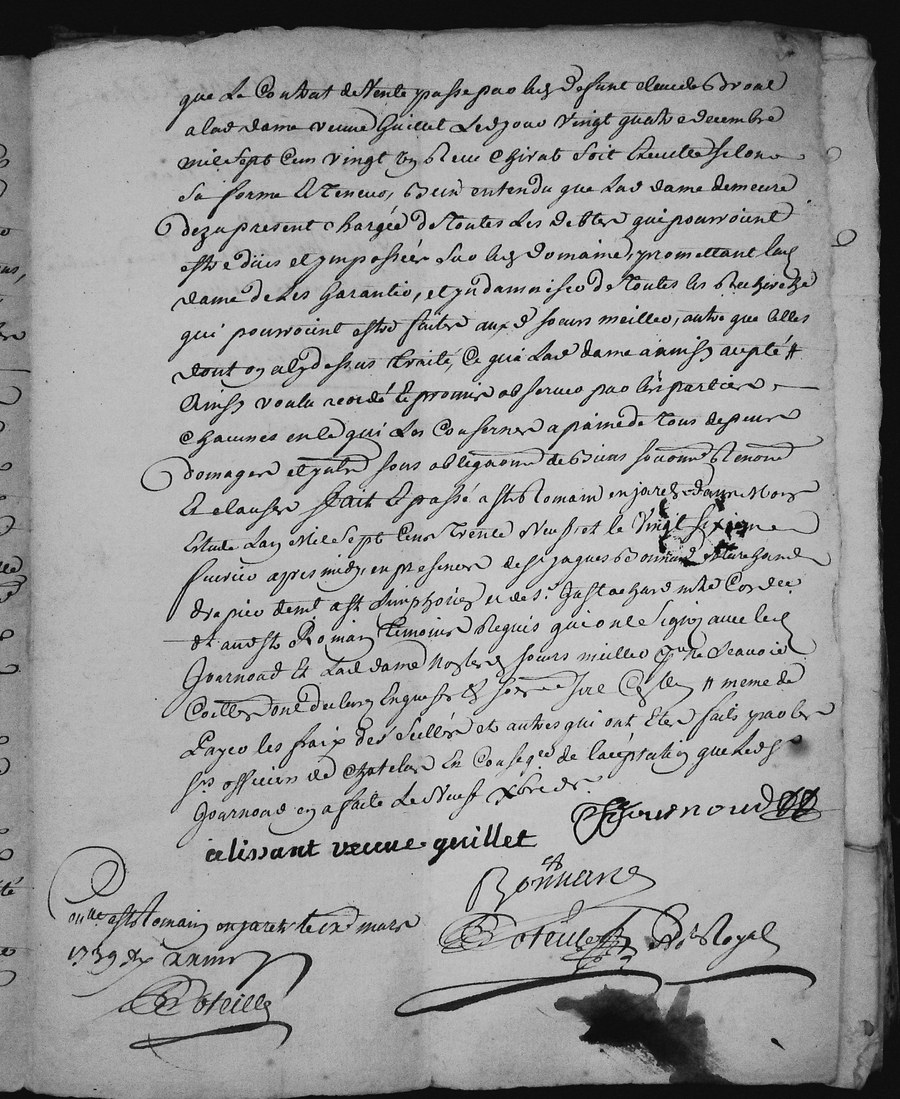 que Le Contrat de Vente passé par led defunt claude
a lad dame veuve Guillet Ledjour Vingt quatre decembre
mil sept Cens vingt un Receu Chirat Soit Executté selon
Sa forme Et Teneur, Bien entendu que Lad dame demeure
dez a present Chargée de toutes Les Debtes qui pourroient
estre dües et imposées Sur led domaine, promettant lad
dame de Les Garantir, et indamniser de toutes les Recherches
qui pourroient estre faites auxd soeurs meiller, autre que Celles
dont on a cy dessus traité, Ce que Lad dame a aussy accepté #
Ainsy voulu accordé Et promis observer par les parties
Chacunes en le qui Les Conserne a paine de tous depens
domages et intts sous obligaõns de Biens soumõns Renonõns
Et clauses fait Et passé a st Romain en jarets dans Nore
Estude Lan Mil Sept Cens Trente Neuf et le Vingt sixieme
fevrier apres midy, en presence de sr jaques Bonnand Marchand
drapier demt a st Simphorien et de sr Just achard mtre Cordier
dt aud st Romain Temoins Requis qui ont Signé avec led
Journoud Et Lad dame Non led soeurs meiller pour ne Scavoir
Ont declaré Enquises Et # meme de
Payer les fraix des Scellés et autres qui ont Eté faits par les
srs officiers de Chatelus En Conseqce de l'acceptation que led sr
Journoud en a faite Le Neuf Xbre dr
Journoud
alissant veuve guillet
Bonnand
Coteille No. Royal
a st Romain en jaret le mars
1739
Coteille